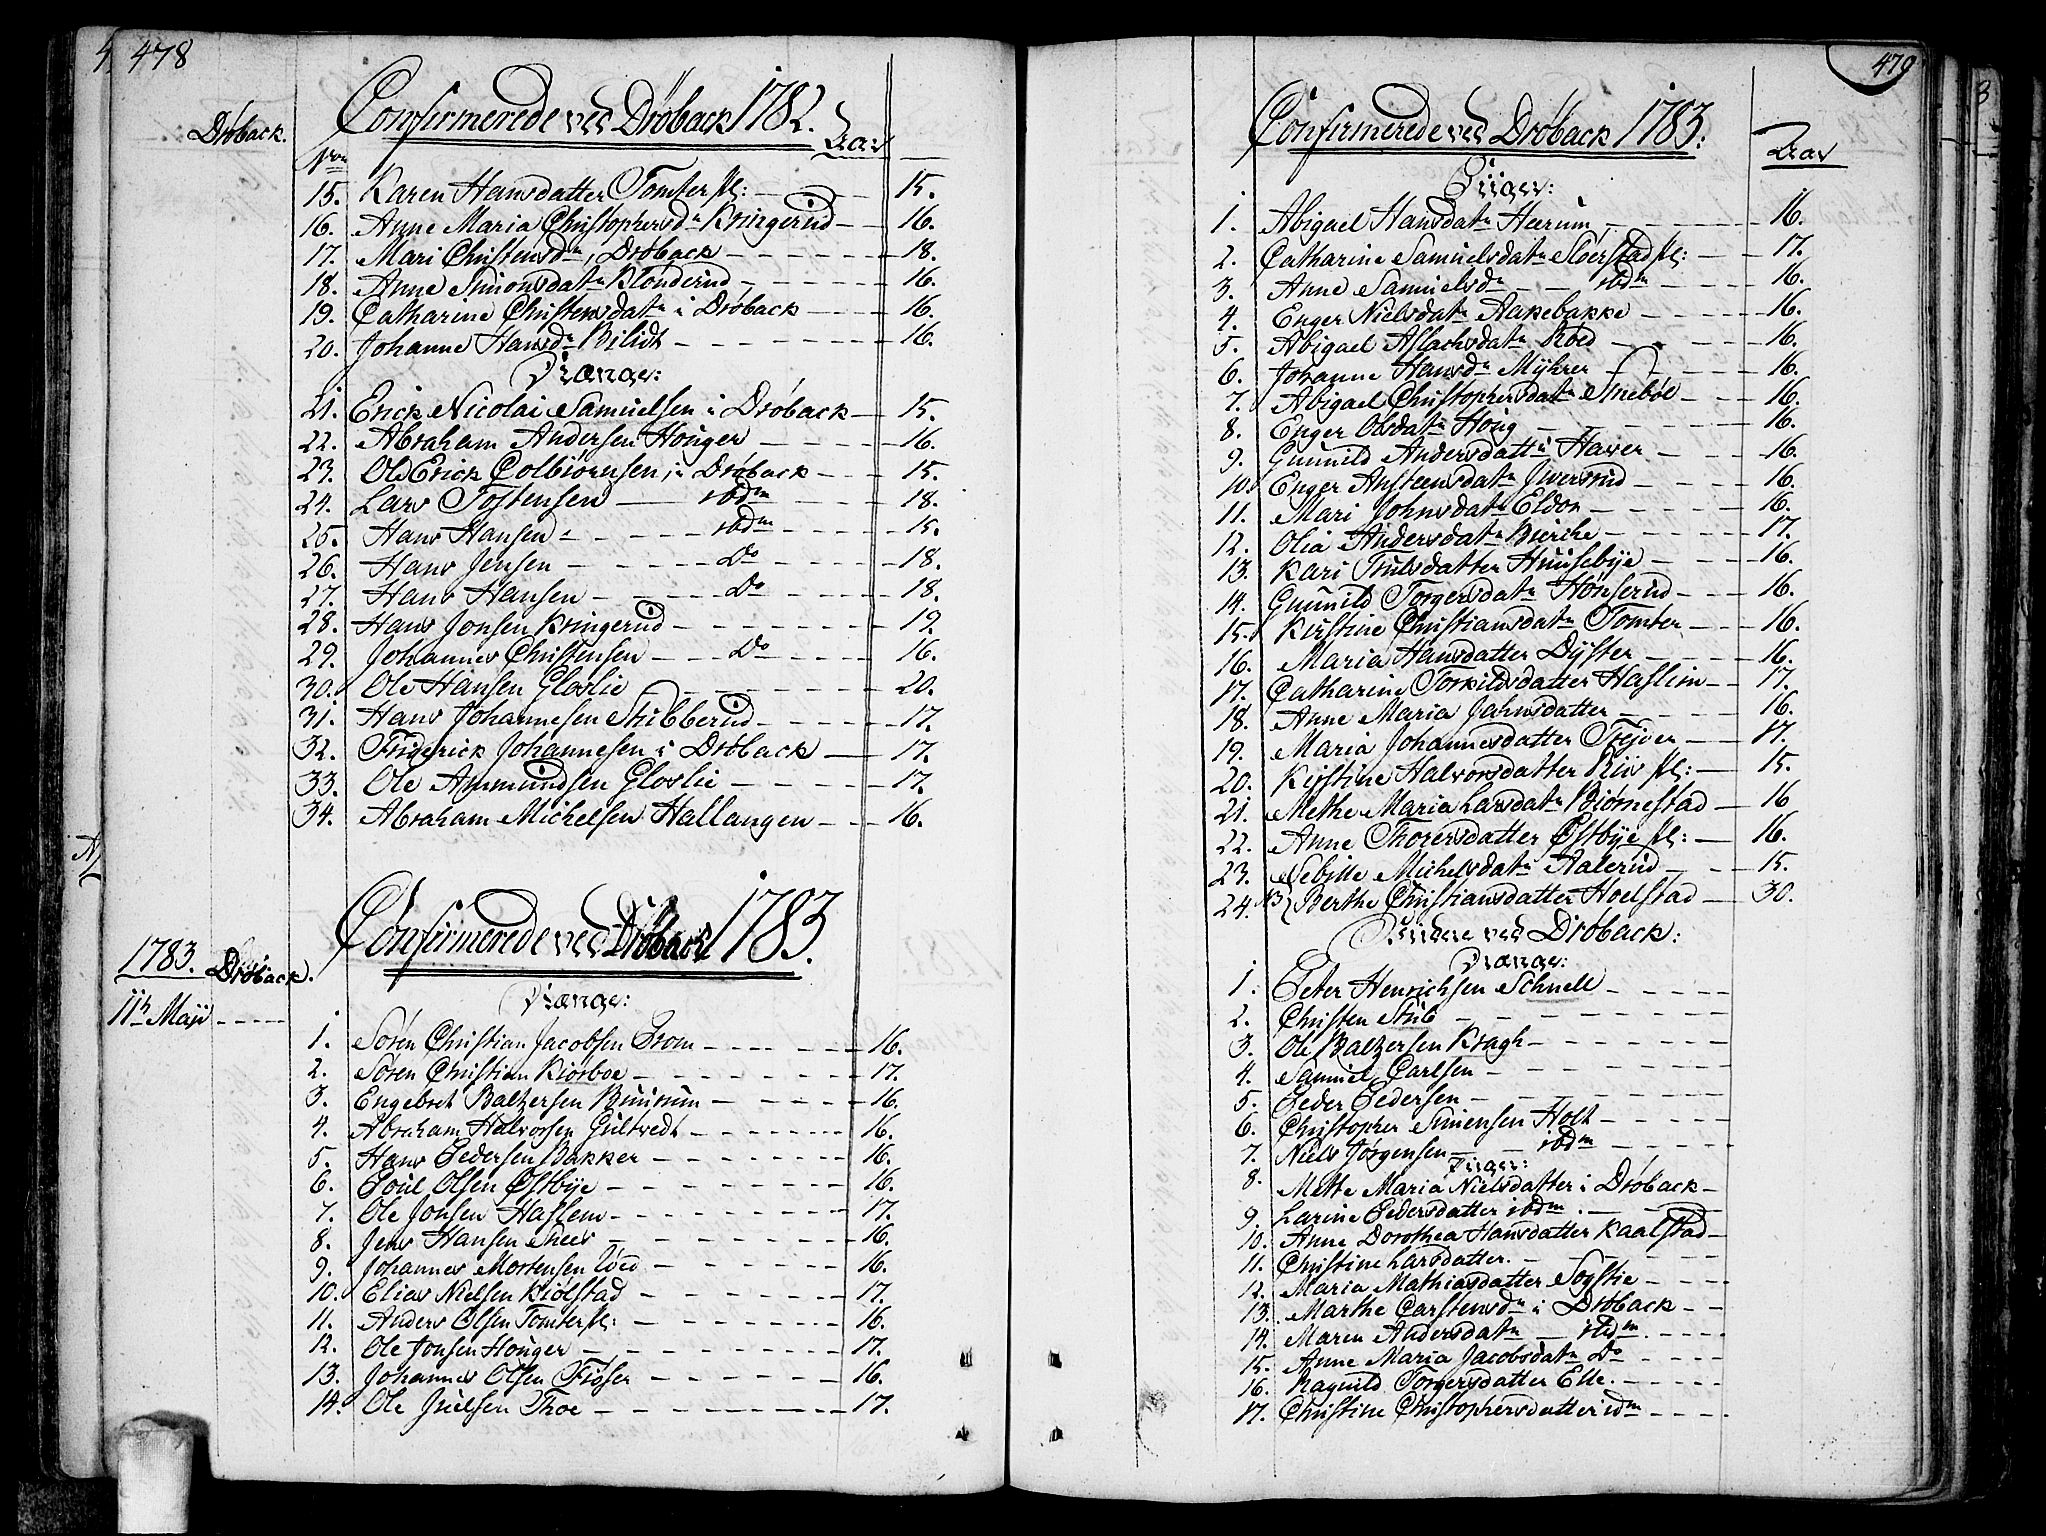 478
Drøback.
Confirmerede ved Drøback 1782.
Aar
15. Karen Hansdatter Tomter pl: 15.
16. Anne Maria Christophersd:r Kringerud 16.
17. Mari Christensd:r, Drøback 18.
18. Anne Simonsdat:r Blønderud 16.
19. Catharine Christensdat:r i Drøback 16.
20. Johanne Hansd:r Bilidt 16.
Drænge:
21. Erick Nicolai Samuelsen i Drøback 15.
22. Abraham Andersen Houger 16.
23. Ole Erick Colbiørnsen, i Drøback 15.
24. Lars Tostensen ibd:m 18.
25. Hans Hansen ibd:m 15.
26. Hans Jensen D:o 18.
27. Hans Hansen D:o 18.
28. Hans Jonsen Kringerud 19.
29. Johannes Christensen D:o 16.
30. Ole Hansen Gloslie 20.
31. Hans Johannesen Stubberud 17.
32. Friderick Johannesen i Drøback 17.
33. Ole Ammundsen Gloslie 17.
34. Abraham Michelsen Hallangen 16.
Confirmerede ved Drøback 1783.
1783. Drøback.
11te Maji
Drænge:
1. Søren Christian Jacobsen From 16.
2. Søren Christian Kiorboe 17.
3. Engebret Baltzersen Buurum 16.
4. Abraham Halvorsen Gultvedt 16.
5. Hans Pedersen Bakker 16.
6. Poul Olsen Østbye 16.
7. Ole Jonsen Haslem 17.
8. Jens Hansen 16.
9. Johannes Mortensen 16.
10. Elias Nielsen Kiølstad 17.
11. Anders Olsen Tomter pl: 16.
12. Ole Jonsen Houger 17.
13. Johannes Olsen Fiøser 16.
14. Ole Juelsen Thoe 17.
479
Confirmerede ved Drøback 1783:
Aar
Piiger:
1. Abigael Hansdat:r Heerum, 16.
2. Catharine Samuelsdat:r Sloerstad pl: 17.
3. Anne Samuelsd:r ibd:m 16.
4. Enger Nielsdat:r Aakebakke 16.
5. Abigael Aslachsdat:r Røed 16.
6. Johanne Hansd:r Myhrer 16.
7. Abigael Christophersdat:r Snebøe 16.
8. Enger Olsdat:r Houg 16.
9. Gunnild Andersdatt:r i Haver 16.
10. Enger Ansteensdat:r Iversrud 16.
11. Mari Johnsdat:r Eldor 16.
12. Olia Andersdat:r Bierche 17.
13. Kari Trulsdatter Huusebye 16.
14. Gunnild Torgersdat:r Hønserud 16.
15. Kirstine Christiansdat:r Tomter 16.
16. Maria Hansdatter Dyster 16.
17. Catharine Torkildsdatter Haslem 17.
18. Anne Maria Jahnsdatter 16.
19. Maria Johannesdatter Treider 17.
20. Kirstine Halvorsdatter Riis pl: 15.
21. Methe Maria Larsdat:r Biørnestad 16
22. Anne Thorersdatter Østbye pl: 16.
23. Sebille Michelsdat:r Aalerud 15.
24. NB Berthe Christiansdatter Hoelstad 30.
ved Drøback:
Drænge:
1. Peter Henrichsen Schnell
2. Christen Stub
3. Ole Baltzersen Kragh
4. Samuel Carlsen
5. Peder Pedersen
6. Christopher Simensen Holt
7. Niels Jørgensen ibd:m
Piiger:
8. Mette Maria Nielsdatter i Drøback
9. Larine Pedersdatter ibd:m
10. Anne Dorothea Hansdatter Kaalstad
11. Christine Larsdatter.
12. Maria Mathiasdatter Sogstie
13. Marthe Carstensd:r i Drøback
14. Maren Andersdat:r ibd:m
15. Anne Maria Jacobsdat:r D:o
16. Ragnild Torgersdatter Elle.
17. Christine Christophersdatter ibd:m